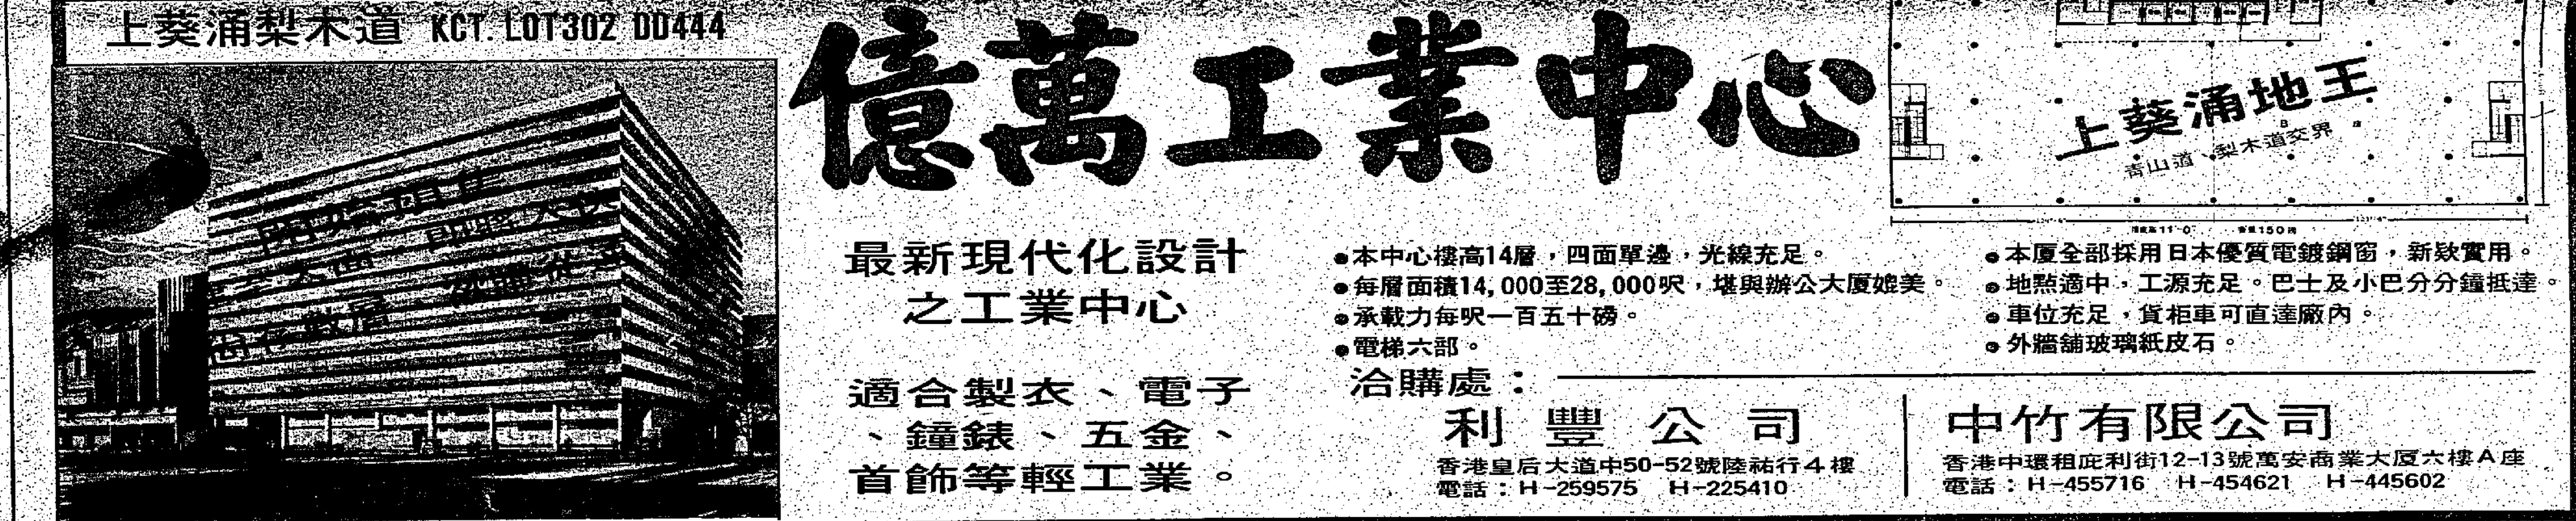 上葵涌梨木道 KCT. LOT302 DD444
億萬工業中心
上葵涌地王
青山道、梨木道交界
最新現代化設計
之工業中心
適合製衣、電子
、鐘錶、五金、
首飾等輕工業。
●本中心樓高14層，四面單邊，光線充足。
●每層面積14,000至28,000呎，堪與辦公大厦媲美。
●承載力每呎一百五十磅。
●電梯六部。
●本厦全部採用日本優質電鍍鋼窗，新欵實用。
●地點適中，工源充足。巴士及小巴分分鐘抵達。
●車位充足，貨柜車可直達廠內。
●外牆舖玻璃紙皮石。
洽購處：
利豐公司
香港皇后大道中50-52號陸祐行4樓
電話：H-259575 H-225410
中竹有限公司
香港中環租庇利街12-13號萬安商業大厦六樓A座
電話：H-455716 H-454621 H-445602